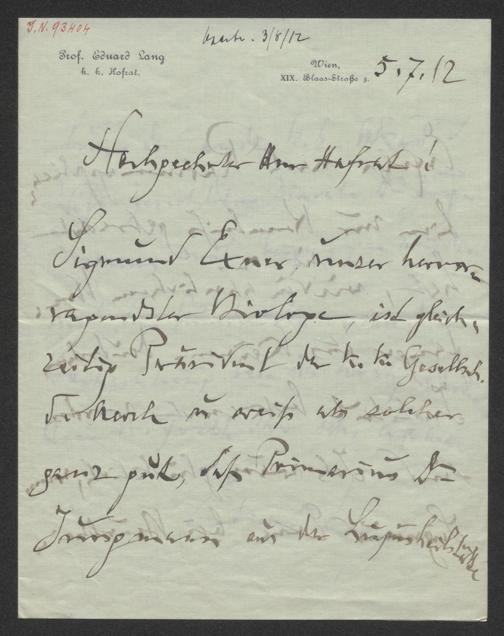 J.N. 93404
3/8/12
Prof. Eduard Lang
k. k. Hofrat.
Wien,
XIX. Blaas-Straße
5.7.12
Hochgeehrter Herr Hofrat!
Sigmund Exner, unser hervor-
ragendster Biologe, ist gleich-
zeitig Präsident der k. k. Gesellsch.
der u weiß als solcher
ganz gut, daß Primarius Dr
Jungmann aus der Lupusheilstätte